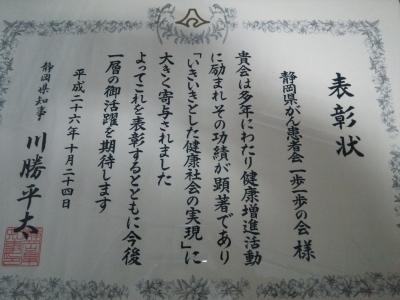 表彰状
静岡県がん患者会一歩一歩の会 様
貴会は多年にわたり健康増進活動
に励まれその功績が顕著であり
「いきいきとした健康社会の実現」に
大きく寄与されました
よってこれを表彰するとともに今後
一層の御活躍を期待します
平成二十六年十月二十四日
静岡県知事 川勝平太